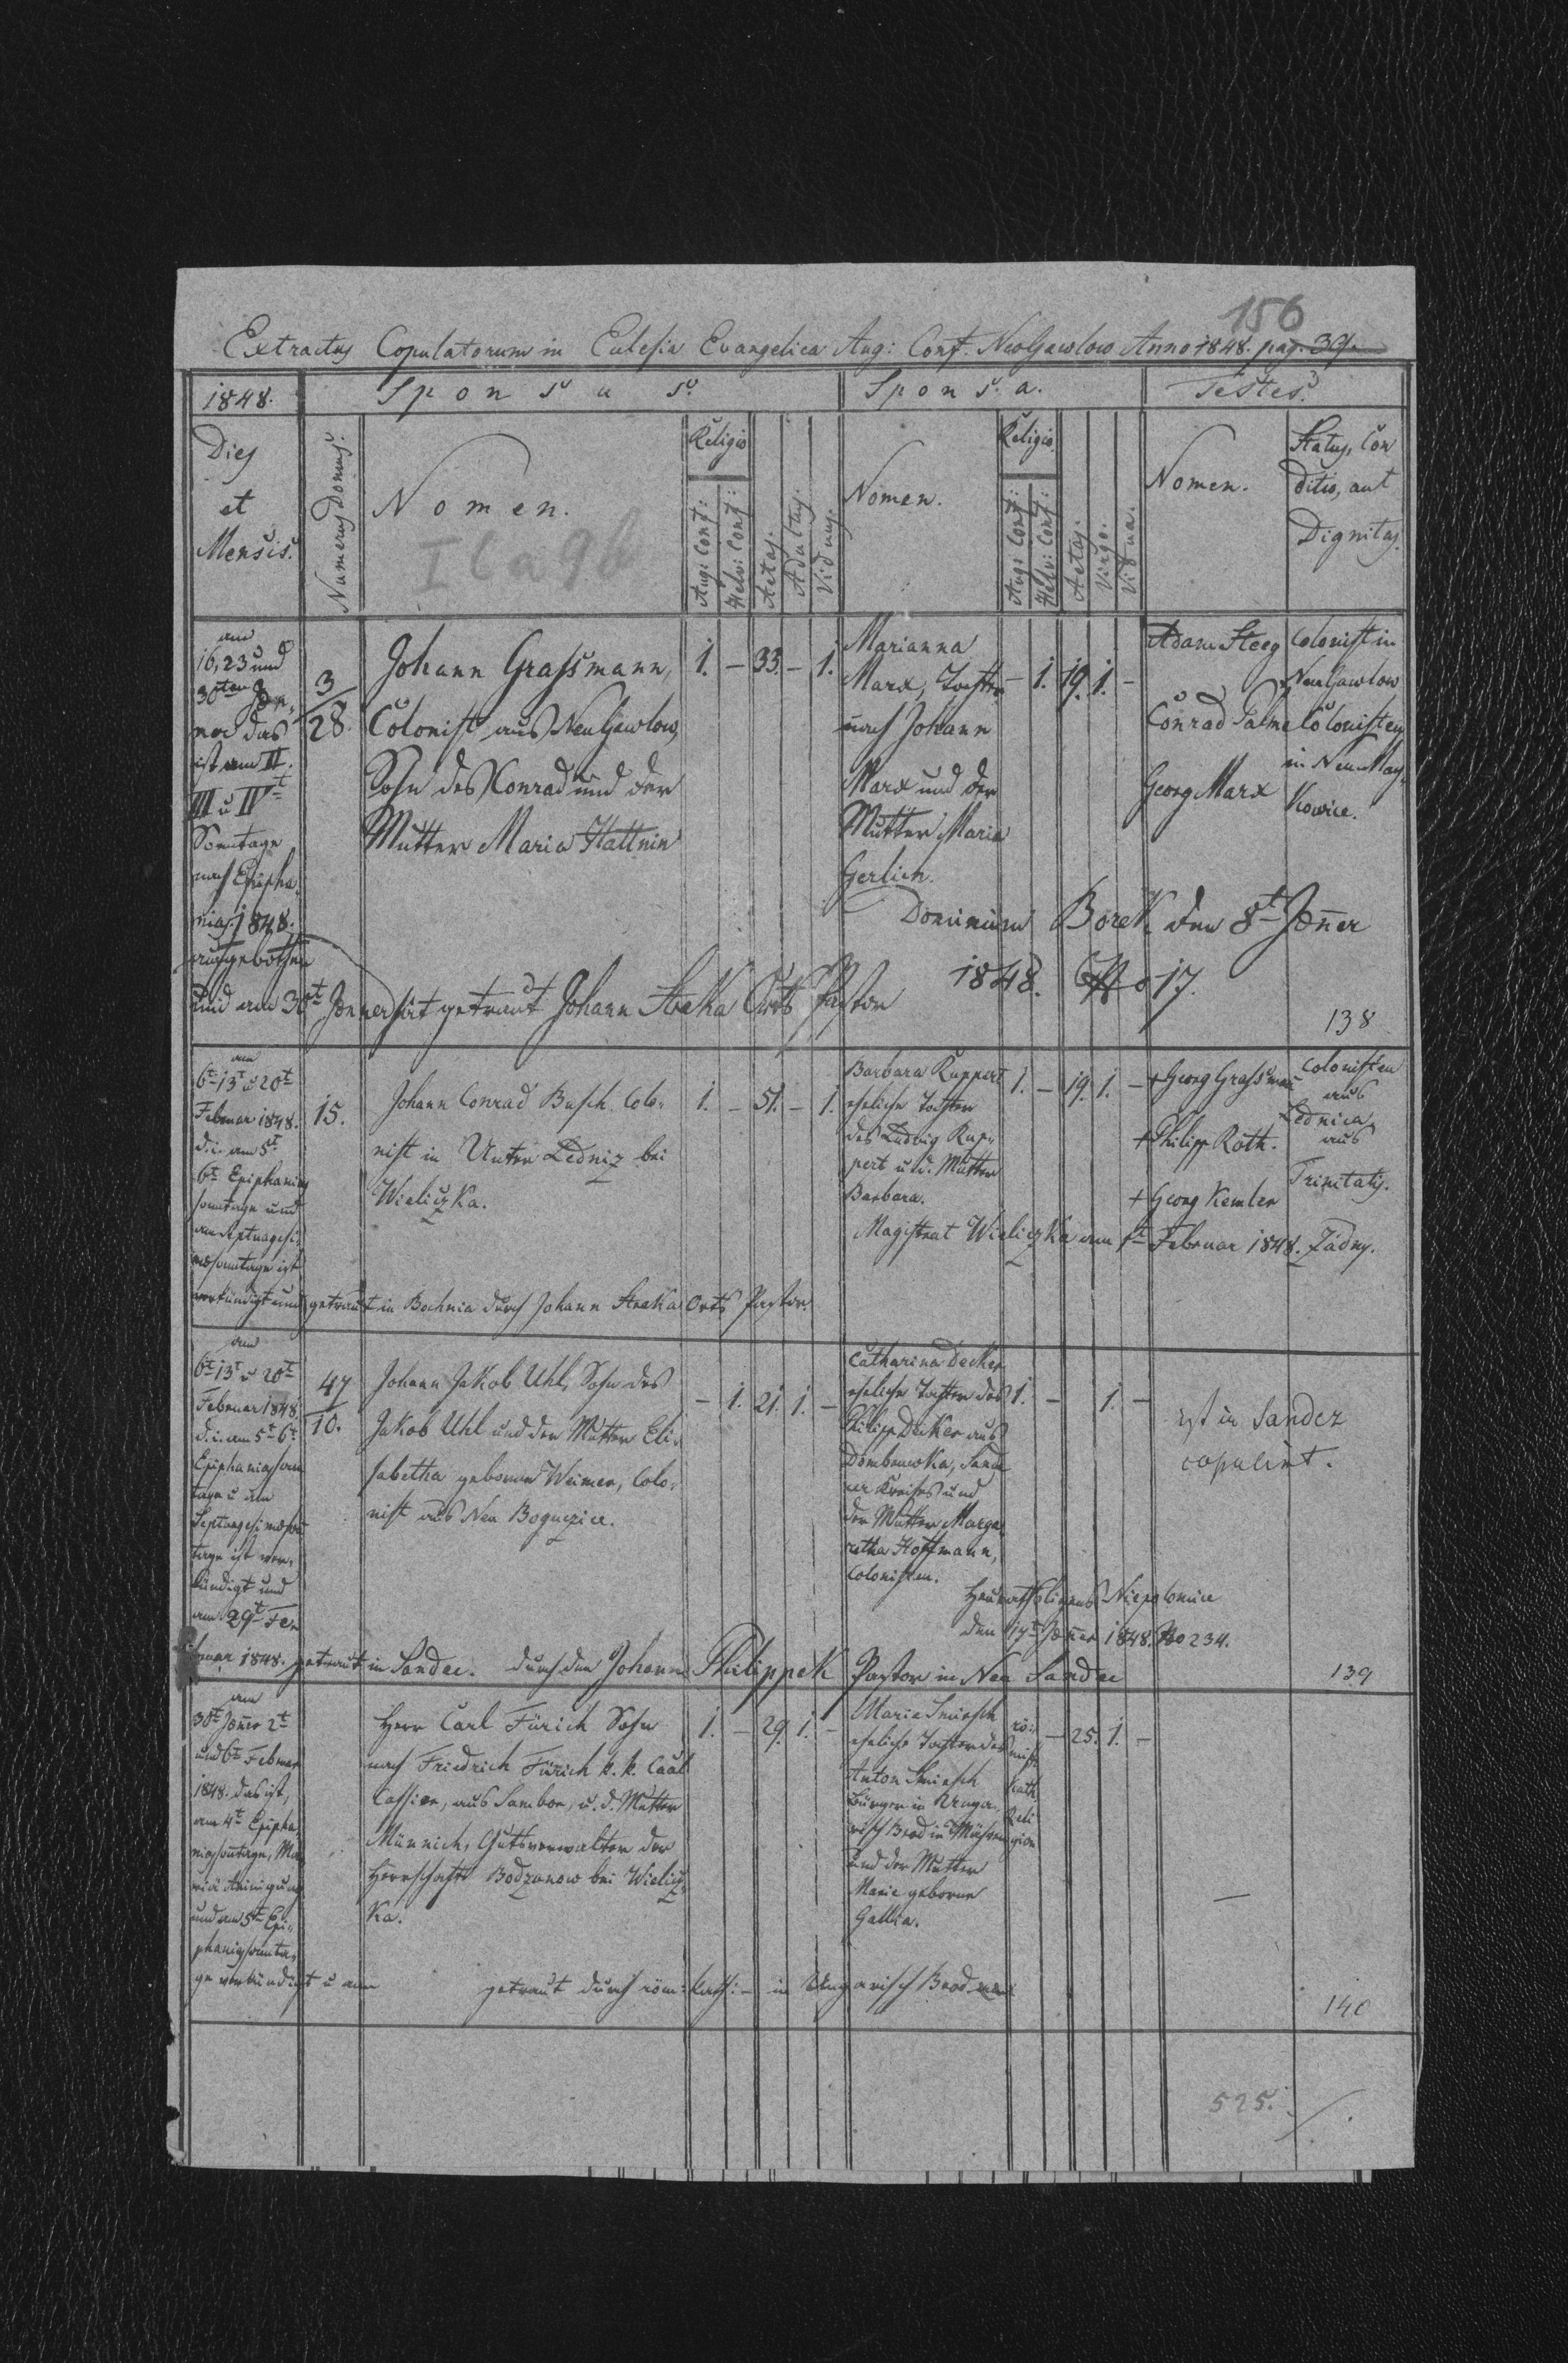 156
Extractus Copulatorum in Eclesia Evangelica Aug: Conf. NeoGawlow Anno 1848. pag. 39.
1848.
Sponsus.
Sponsa.
Testes.
Dies
et
Mensis.
Numerus Domus.
Nomen.
Religio
Aug: Conf:
Helv: Conf:
Aetas.
Adultus.
Viduus.
Nomen.
Religio
Aug: Conf:
Helv: Conf:
Aetas.
Virgo.
Vidua.
Nomen.
Status, Con
ditio, aut
Dignitas.
am
16, 23 und
30ten Jän-
ner das
ist am II.
III u IVt
Sontage
nach Epipha
nias 1848.
aufgebothen
und am 30t Jänner hier getraut Johann Straka Orts Pastor
3/28.
Johann Grassmann,
Colonist aus NeuGawlow,
Sohn des Konrad und der
Mutter Maria Hattnin
1. – 33. – 1.
Marianna
Marx, Tochter
nach Johann
Marx und der
Mutter Maria
Gerlich.
– 1. 19. 1. –
Adam Steeg
Conrad Palme
Georg Marx
Colonist in
NeuGawlow
Colonisten
in Neu May-
kowice.
Dominium Borek den 8t Jäner
1848. No 17.
138
am
6t 13t u 20t
Februar 1848.
d. i. am 5t
6t Epiphanias
sonntage und
am Septuagesi-
masonntage ist
verkündigt und getraut in Bochnia durch Johann Straka Orts Pastor.
15.
Johann Conrad Busch Colo-
nist in Unter Ledniz bei
Wieliczka.
1. – 51. – 1.
Barbara Ruppert
eheliche Tochter
des Ludwig Rup-
pert u. d. Mutter
Barbara.
1. – 19. 1. –
+ Georg Grassman
+ Philipp Roth.
+ Georg Kemler
Colonisten
aus
Lednica,
aus
Trinitatis.
Magistrat Wieliczka am 1t Februar 1848. Zadny.
am
6t 13t u 20t
Februar 1848
d. i. am 5t 6t
Epiphaniasson
tage u am
Septuagesimason
tage ist ver-
kündigt und
am 29t Fe-
bruar 1848. getraut in Sandec. durch den Johann Philippek Pastor in Neu Sandec
47/10.
Johann Jakob Uhl, Sohn des
Jakob Uhl und der Mutter Eli-
sabetha geborne Weimer, Colo-
nist aus Neu Boguczice.
– 1. 21. 1. –
Catharina Decker
eheliche Tochter des
Philipp Decker aus
Dombrowka, Sande
cer Kreises und
der Mutter Marga
retha Hoffmann,
Colonisten.
1. – 1. –
ist in Sandez
copulirt.
Heurathslizenz Niepolomice
den 17t Jäner 1848. No 234.
139
am
30t Jäner 2t
und 6t Februar
1848. das ist,
am 4t Epipha
niassontage, Ma
riä Reinigung
und am 5t Epi-
phaniassonnta-
ge verkündigt u am
getraut durch röm: kath: – in Ungarisch Brod
Herr Carl Fürich Sohn
nach Friedrich Fürich k. k. Caal
Cassier, aus Sambor, u. d. Mutter
Münnich, Gutsverwalter der
Herrschaft Bodzanow bei Wielicz-
ka.
1. – 29. 1. –
Maria Smiesch
eheliche Tochter des
Anton Smiesch
Bürger in
risch Brod in Mähren
und der Mutter
Marie geborne
Gallia.
rö-
misch
kath.
Reli
gion
– 25. 1. –
–
140
525.